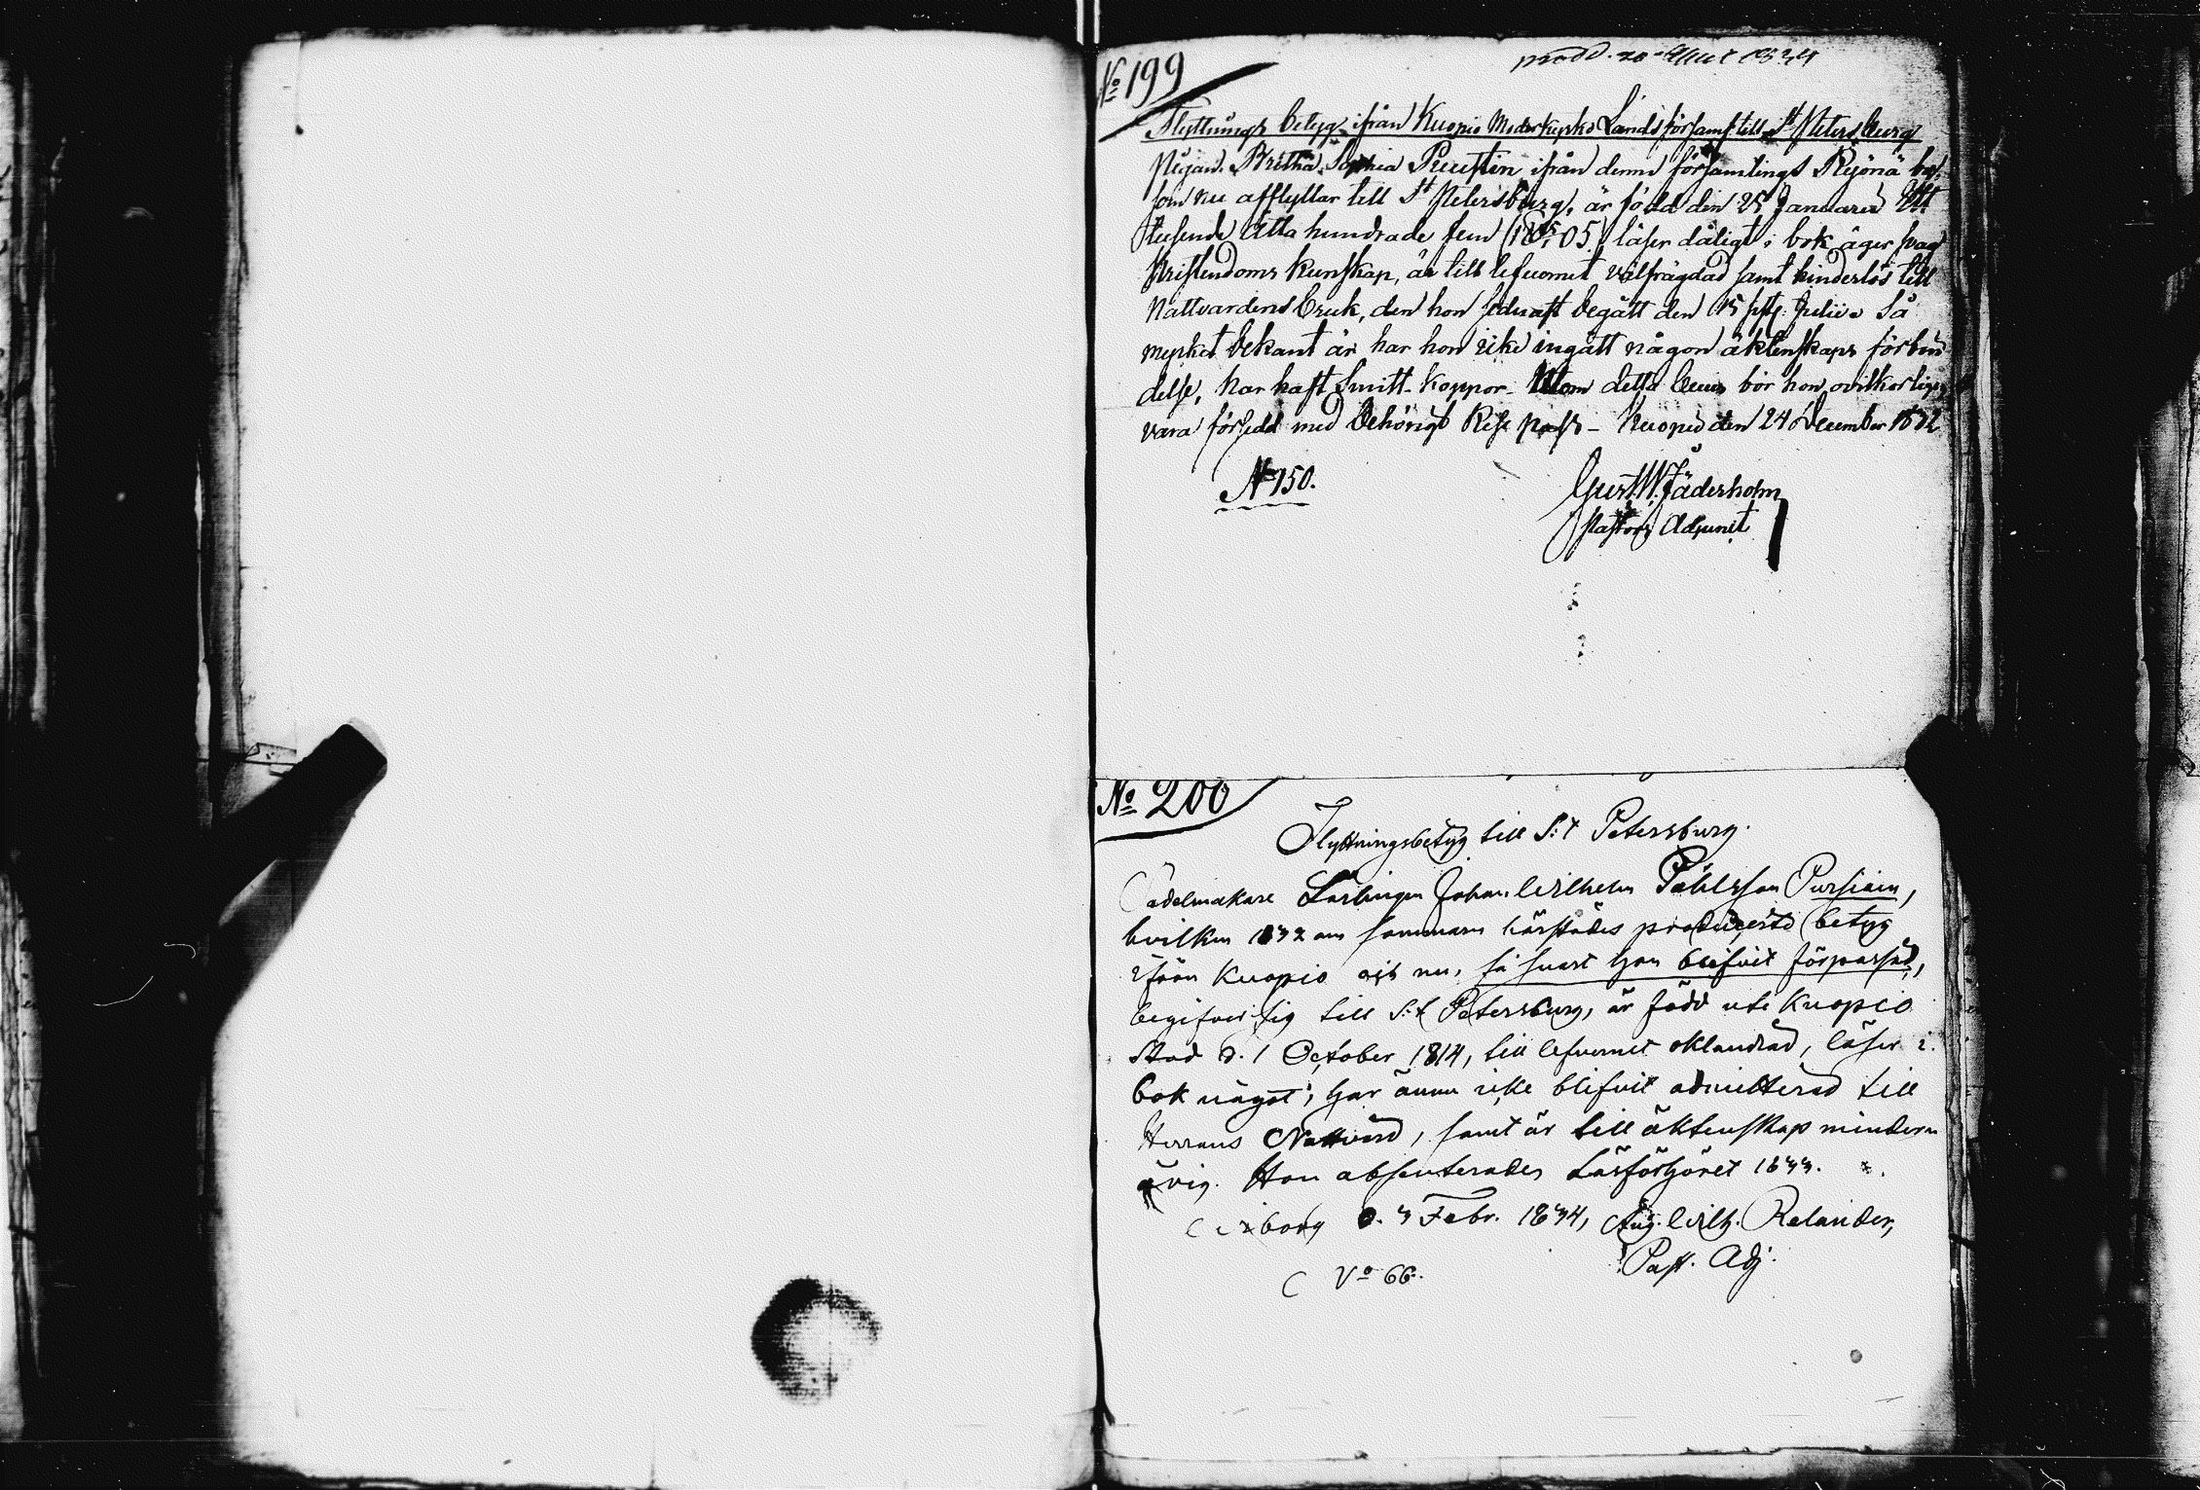 No 199
prodd. 20 1834
Flyttnings betyg ifrån Kuopio Moderkyrko Landsförsaml. till St Petersburg
Pigan Britha Sophia Puustin ifrån denna församlings
som nu afflyttar till St Petersburg, är född den 25 Januarii Ett
tusende åtta hundrade fem (1805) läser dåligt i bok äger svag
kristendoms kunskap, är till lefvernet välfrägdad samt hinderlös till
Nattvardens bruk, den hon sednast begått den 15 sistl. Julii. Så
mycket bekant är har hon icke ingått någon äktenskaps förbin
delse, har haft Smitt-koppor. Utom detta bevis bör hon ovilkorligen
vara försedd med behörigt Rese pass – Kuopio den 24 December 1832
No 150.
Gust. W. Fäderholm
Pastors Adjunct
No 200
Flyttningsbetyg till S:t Petersburg.
Sadelmakare Lärlingen Johan Wilhelm Påhlsson Pursiain,
hvilken 1832 om sommarn härstädes producerad betyg
ifrån Kuopio och nu, så snart han blifvit förpassad,
begifver sig till S:t Petersburg, är född uti Kuopio
Stad d. 1 October 1814, till lefvernet oklandrad, läser i
bok något; har ännu icke blifvit admitterad till
Herrans Nattvard, samt är till äktenskap minder
årig. Han absenterades Läsförhöret 1833.
Wiborg d. 3 Febr. 1834, Aug. Wilh. Relander,
Past. Adj.
No 66.